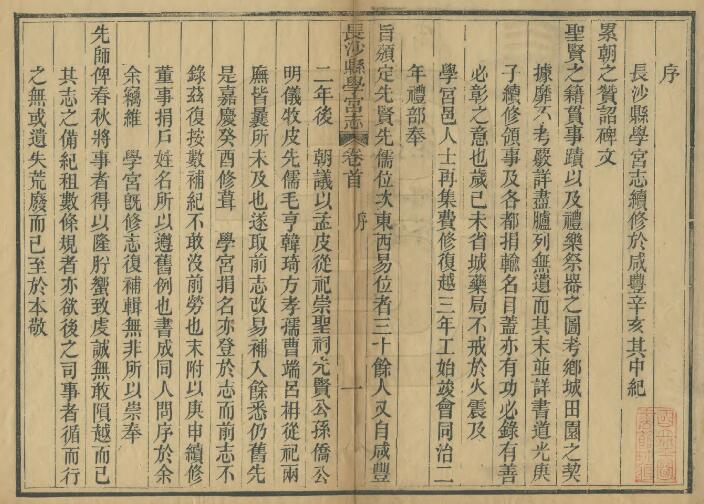 序
長沙縣學宮志續修於咸豐辛亥其中紀
累朝之贊詔碑文
聖賢之籍貫事蹟以及禮樂祭器之圖考鄉城田園之契
據靡不考覈詳盡臚列無遺而其末並詳書道光庚
子續修領事及各都捐輸名目蓋亦有功必錄有善
必彰之意也歲己未省城藥局不戒於火震及
學宮邑人士再集費修復越三年工始竣會同治二
年禮部奉
長沙縣學宮志 卷首 序 一
旨頒定先賢先儒位次東西易位者三十餘人又自咸豐
二年後 朝議以孟皮從祀崇聖祠先賢公孫僑公
明儀牧皮先儒毛亨韓琦方孝孺曹端呂柟從祀兩
廡皆曩所未及也遂取前志改易補入餘悉仍舊先
是嘉慶癸酉修葺 學宮捐名亦登於志而前志不
錄茲復按數補紀不敢沒前勞也末附以庚申續修
董事捐戶姓名所以遵舊例也書成同人問序於余
余竊維 學宮旣修志復補輯無非所以崇奉
先師俾春秋將事者得以隆肸蠁致虔誠無敢隕越而已
其志之備紀租數條規者亦欲後之司事者循而行
之無或遺失荒廢而已至於本敬